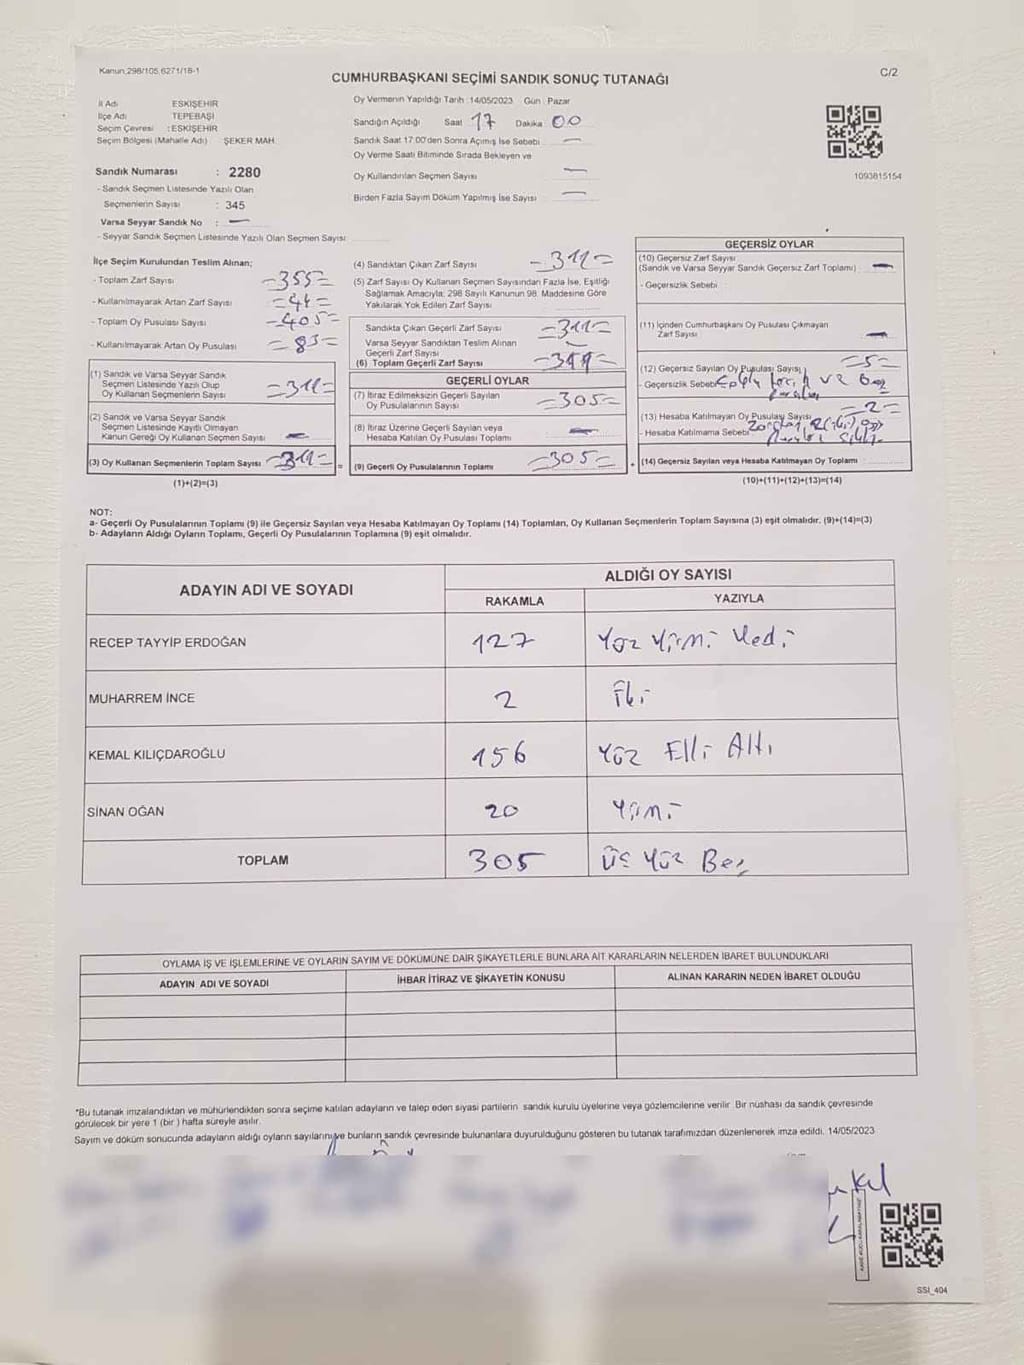 Kanun,298/105,6271/18-1
CUMHURBAŞKANI SEÇİMİ SANDIK SONUÇ TUTANAĞI
C/2
İl Adı ESKİŞEHİR
İlçe Adı TEPEBAŞI
Seçim Çevresi : ESKİŞEHİR
Seçim Bölgesi (Mahalle Adı) ŞEKER MAH.
Oy Vermenin Yapıldığı Tarih : 14/05/2023 Gün : Pazar
Sandığın Açıldığı Saat 17 Dakika 00
Sandık Saat 17:00'den Sonra Açımış İse Sebebi
Oy Verme Saati Bitiminde Sırada Bekleyen ve
Oy Kullandırılan Seçmen Sayısı
Birden Fazla Sayım Döküm Yapılmış İse Sayısı
1093815154
Sandık Numarası : 2280
- Sandık Seçmen Listesinde Yazılı Olan
Seçmenlerin Sayısı : 345
Varsa Seyyar Sandık No :
- Seyyar Sandık Seçmen Listesinde Yazılı Olan Seçmen Sayısı
İlçe Seçim Kurulundan Teslim Alınan;
- Toplam Zarf Sayısı 355
- Kullanılmayarak Artan Zarf Sayısı 44
- Toplam Oy Pusulası Sayısı 405
- Kullanılmayarak Artan Oy Pusulası 83
(1) Sandık ve Varsa Seyyar Sandık
Seçmen Listesinde Yazılı Olup
Oy Kullanan Seçmenlerin Sayısı 311
(2) Sandık ve Varsa Seyyar Sandık
Seçmen Listesinde Kayıtlı Olmayan
Kanun Gereği Oy Kullanan Seçmen Sayısı
(3) Oy Kullanan Seçmenlerin Toplam Sayısı 311
(1)+(2)=(3)
(4) Sandıktan Çıkan Zarf Sayısı 311
(5) Zarf Sayısı Oy Kullanan Seçmen Sayısından Fazla İse, Eşitliği
Sağlamak Amacıyla; 298 Sayılı Kanunun 98. Maddesine Göre
Yakılarak Yok Edilen Zarf Sayısı
Sandıkta Çıkan Geçerli Zarf Sayısı 311
Varsa Seyyar Sandıktan Teslim Alınan
Geçerli Zarf Sayısı
(6) Toplam Geçerli Zarf Sayısı 311
GEÇERLİ OYLAR
(7) İtiraz Edilmeksizin Geçerli Sayılan
Oy Pusulalarının Sayısı 305
(8) İtiraz Üzerine Geçerli Sayılan veya
Hesaba Katılan Oy Pusulası Toplamı
(9) Geçerli Oy Pusulalarının Toplamı 305
GEÇERSİZ OYLAR
(10) Geçersiz Zarf Sayısı
(Sandık ve Varsa Seyyar Sandık Geçersiz Zarf Toplamı)
- Geçersizlik Sebebi
(11) İçinden Cumhurbaşkanı Oy Pusulası Çıkmayan
Zarf Sayısı
(12) Geçersiz Sayılan Oy Pusulası Sayısı 5
- Geçersizlik Sebebi
(13) Hesaba Katılmayan Oy Pusulası Sayısı 2
- Hesaba Katılmama Sebebi
(14) Geçersiz Sayılan veya Hesaba Katılmayan Oy Toplamı
(10)+(11)+(12)+(13)=(14)
NOT:
a- Geçerli Oy Pusulalarının Toplamı (9) ile Geçersiz Sayılan veya Hesaba Katılmayan Oy Toplamı (14) Toplamları, Oy Kullanan Seçmenlerin Toplam Sayısına (3) eşit olmalıdır. (9)+(14)=(3)
b- Adayların Aldığı Oyların Toplamı, Geçerli Oy Pusulalarının Toplamına (9) eşit olmalıdır.
ADAYIN ADI VE SOYADI
ALDIĞI OY SAYISI
RAKAMLA YAZIYLA
RECEP TAYYİP ERDOĞAN 127 Yüz Yirmi Yedi
MUHARREM İNCE 2 İki
KEMAL KILIÇDAROĞLU 156 Yüz Elli Altı
SİNAN OĞAN 20 Yirmi
TOPLAM 305 Üç Yüz Beş
OYLAMA İŞ VE İŞLEMLERİNE VE OYLARIN SAYIM VE DÖKÜMÜNE DAİR ŞİKAYETLERLE BUNLARA AİT KARARLARIN NELERDEN İBARET BULUNDUKLARI
ADAYIN ADI VE SOYADI İHBAR İTİRAZ VE ŞİKAYETİN KONUSU ALINAN KARARIN NEDEN İBARET OLDUĞU
*Bu tutanak imzalandıktan ve mühürlendikten sonra seçime katılan adayların ve talep eden siyasi partilerin sandık kurulu üyelerine veya gözlemcilerine verilir. Bir nüshası da sandık çevresinde
görülecek bir yere 1 (bir ) hafta süreyle asılır.
Sayım ve döküm sonucunda adayların aldığı oyların sayılarını ve bunların sandık çevresinde bulunanlara duyurulduğunu gösteren bu tutanak tarafımızdan düzenlenerek imza edildi. 14/05/2023
SSI_404